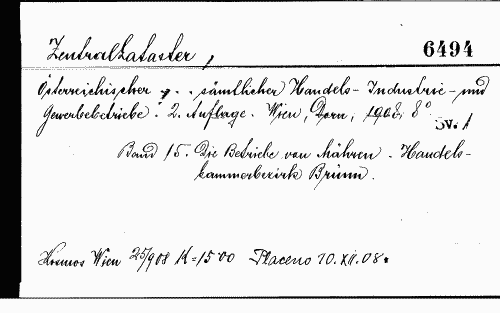 Zentralkataster, 6494
Österreichischer , . . sämtlicher Handels- Industrie- und
Gewerbebetriebe. 2. Auflage. Wien, Dorn, 1908, 8°
Sv. 1
Band 15. Die Betriebe von Mähren. Handels-
kammerbezirk Brünn.
Kosmos Wien 25/9 08 K=15 00 Placeno 10. XII. 08.